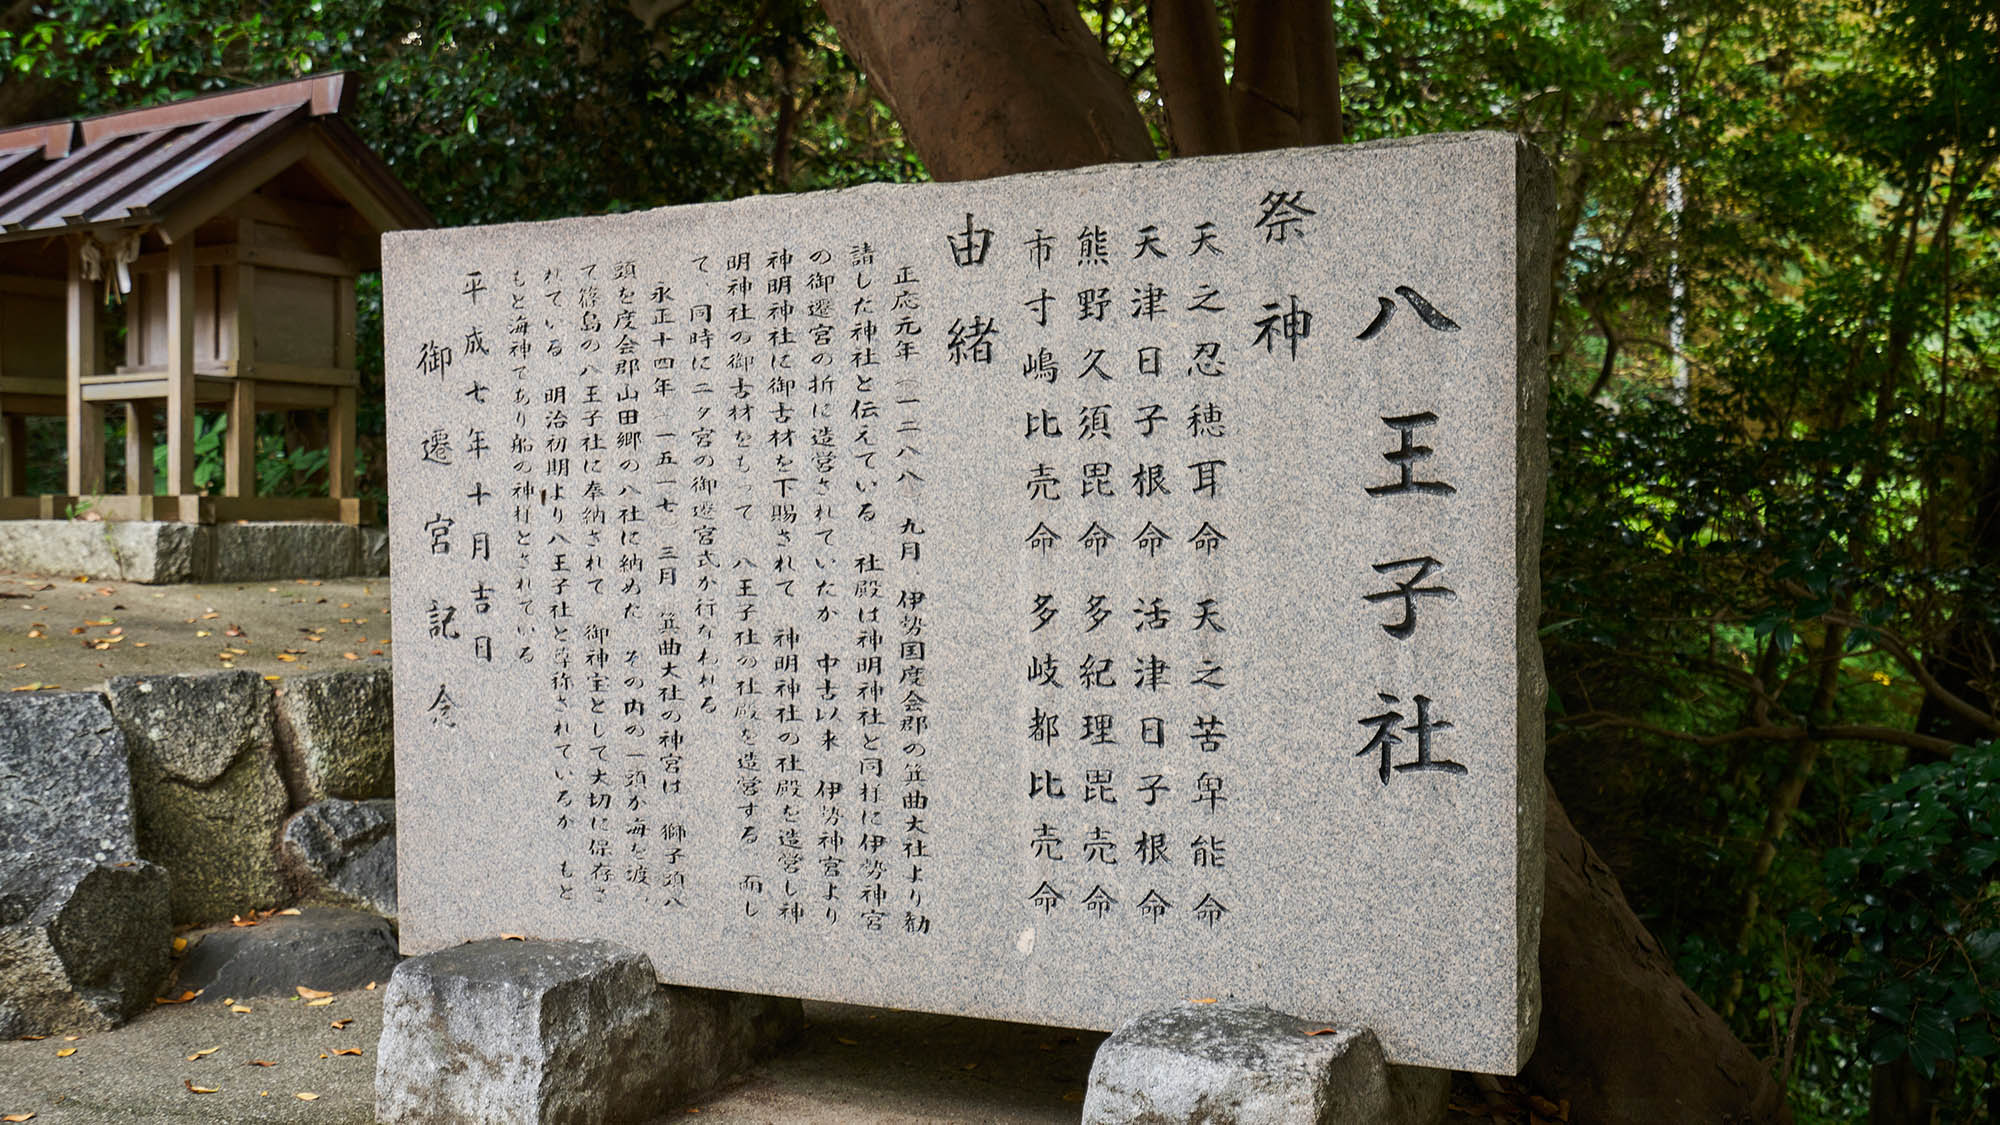 八王子社
祭神
天之忍穂耳命 天之苦卑能命
天津日子根命 活津日子根命
熊野久須毘命 多紀理毘売命
市寸嶋比売命 多岐都比売命
由緒
正応元年(一二八八)九月、伊勢国度会郡の箕曲大社より勧
請した神社と伝えている 社殿は神明神社と同様に伊勢神宮
の御遷宮の折に造営されていたが 中古以来 伊勢神宮より
神明神社に御古材を下賜されて 神明神社の社殿を造営し神
明神社の御古材をもって 八王子社の社殿を造営する 而し
て、同時に二夕宮の御遷宮式が行なわれる
永正十四年(一五一七)三月 箕曲大社の神宮は 獅子頭八
頭を度会郡山田郷の八社に納めた その内の一頭が海を渡、
て篠島の八王子社に奉納されて 御神宝として大切に保存さ
れている 明治初期より八王子社と尊称されているが もと
もと海神であり船の神社とされている
平成七年十月吉日
御遷宮記念